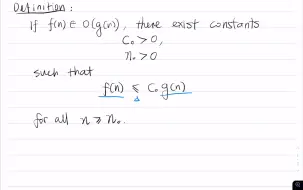 Definition:
If f(n) ∈ O(g(n)), there exist constants
C₀ > 0,
n₀ > 0
such that
f(n) ≤ C₀ g(n)
for all n ≥ n₀.